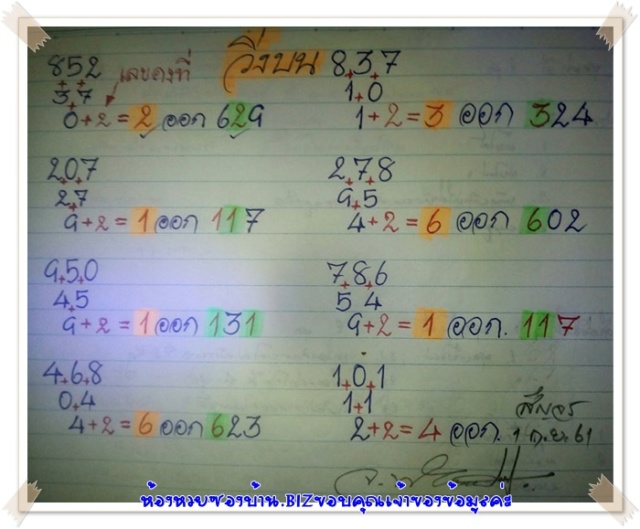 วิ่งบน
852 เลขคงที่
3+7
0+2=2 ออก 629
2+0+7
2+7
9+2=1 ออก 117
9+5+0
4+5
9+2=1 ออก 131
4+6+8
0+4
4+2=6 ออก 623
8+3+7
1+0
1+2=3 ออก 324
2+7+8
9+5
4+2=6 ออก 602
7+8+6
5 4
9+2=1 ออก. 117
1+0+1
1+1
2+2=4 ออก. 1 ก.ย. 61
สัญจร
ห้องหวยซองบ้าน.BIZขอบคุณเจ้าของข้อมูลค่ะ